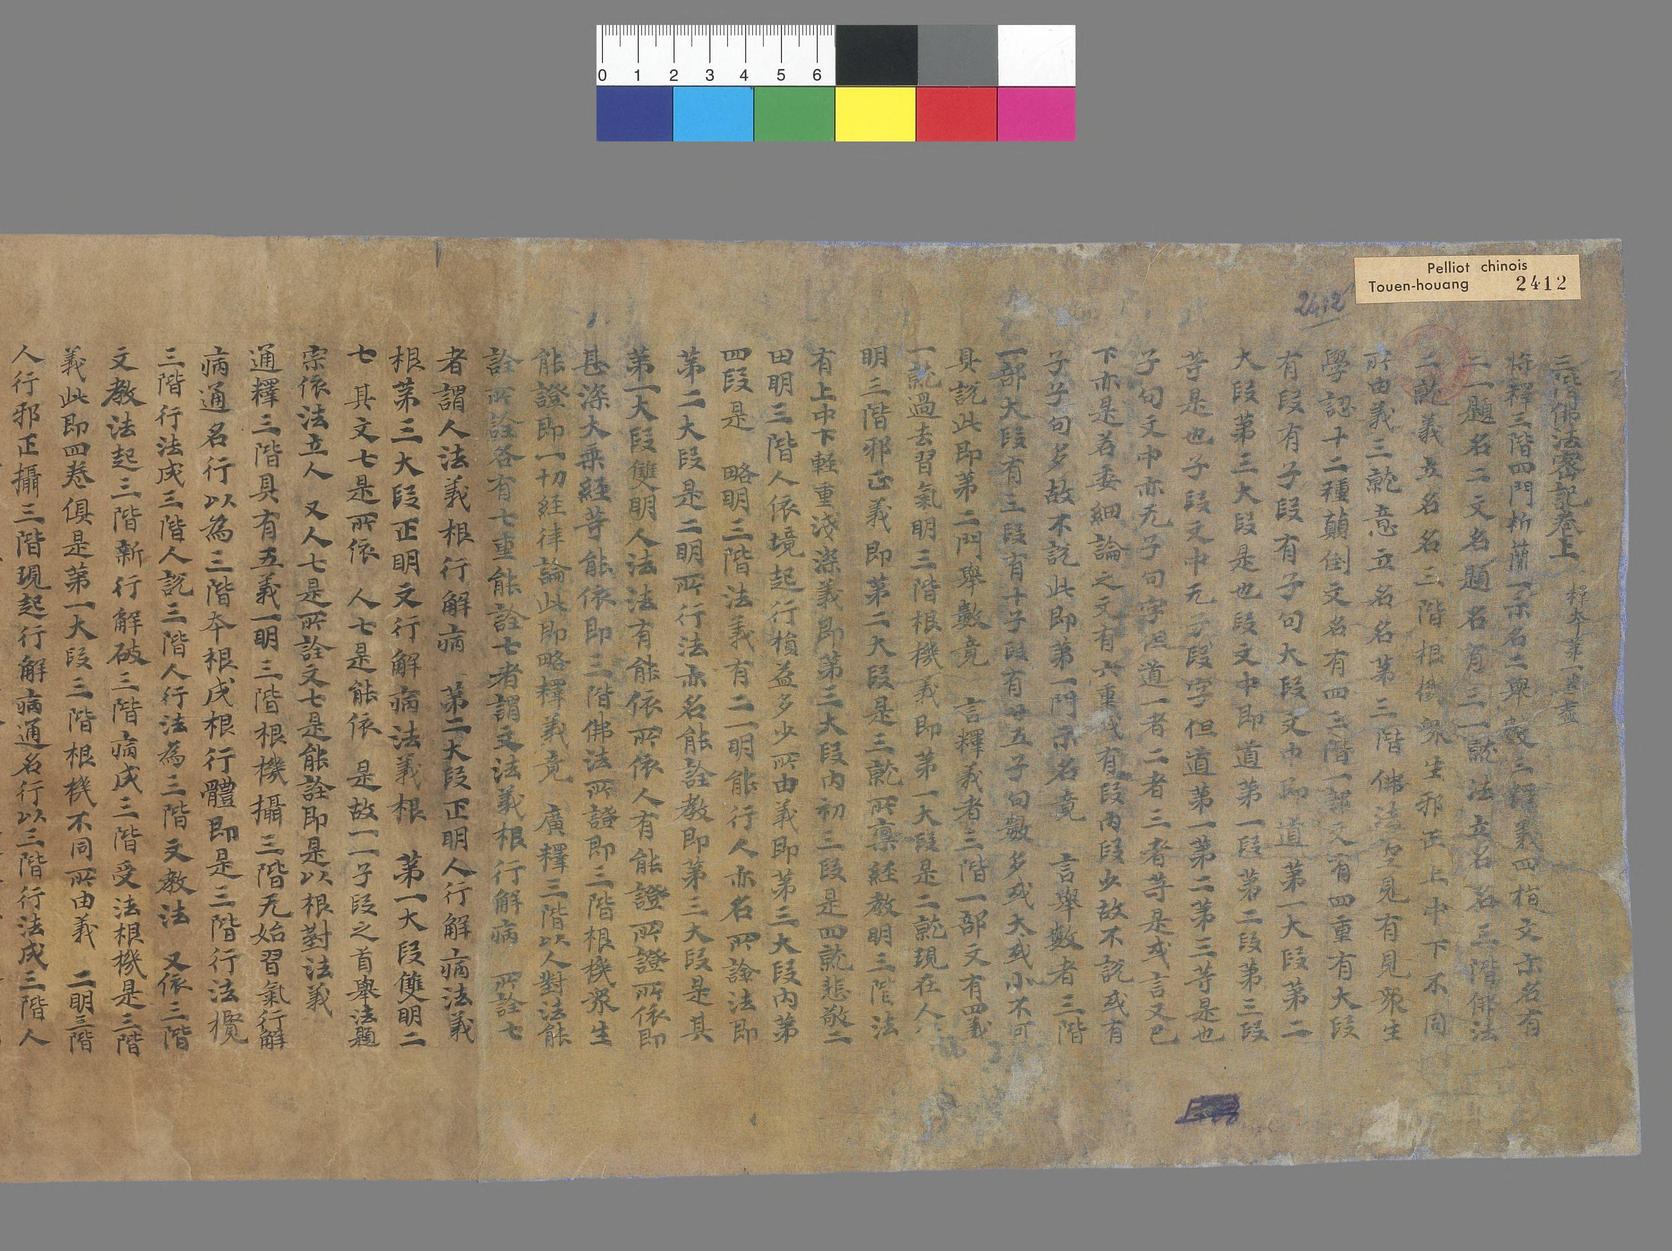 Pelliot chinois
Touen-houang 2412
2412
0 1 2 3 4 5 6
三階佛法密記卷上
將釋三階四門析蕳一示名二舉數三釋義四指文示名有
二一題名二文名題名有三一就法立名名三階佛法
二就義立名名三階根機眾生邪正上中下不同
所由義三就意立名名第三階佛法空見有見眾生
學認十二種顛倒文名有四三階一部文有四重有大段
有段有子段有子句大段文中即道第一大段第二
大段第三大段是也段文中即道第一段第二段第三段
等是也子段文中无子段字但道第一第二第三等是也
子句文中亦无子句字但道一者二者三者等是或言又已
下亦是若委細論之文有六重或有段內段少故不說或有
子子句多故不說此即第一門示名竟 言舉數者三階
一部大段有三段有十子段有廿五子句數多或大或小不可
具說此即第二門舉數竟 言釋義者三階一部文有四義
一就過去習氣明三階根機義即第一大段是二就現在人
明三階邪正義即第二大段是三就所稟經教明三階法
有上中下輕重淺深義即第三大段內初三段是四就悲敬二
田明三階人依境起行損益多少所由義即第三大段內第
四段是 略明三階法義有二一明能行人亦名所詮法即
第二大段是二明所行法亦名能詮教即第三大段是其
第一大段雙明人法法有能依所依人有能證所證所依即
甚深大乘經等能依即三階佛法所證即三階根機眾生
能證即一切經律論此即略釋義竟 廣釋三階以人對法能
詮所詮各有七重能詮七者謂文法義根行解病 所詮七
者謂人法義根行解病 第二大段正明人行解病法義
根第三大段正明文行解病法義根 第一大段雙明二
七 其文七是所依 人七是能依 是故一一子段之首舉法題
宗依法立人 又人七是所詮文七是能詮即是以根對法義
通釋三階具有五義一明三階根機攝三階无始習氣行解
病通名行以為三階本根成根行體即是三階行法欖
三階行法成三階人說三階人行法為三階文教法 又依三階
文教法起三階新行解破三階病成三階受法根機是三階
義此即四卷俱是第一大段三階根機不同所由義 二明三階
人行邪正攝三階現起行解病通名行以三階行法成三階人